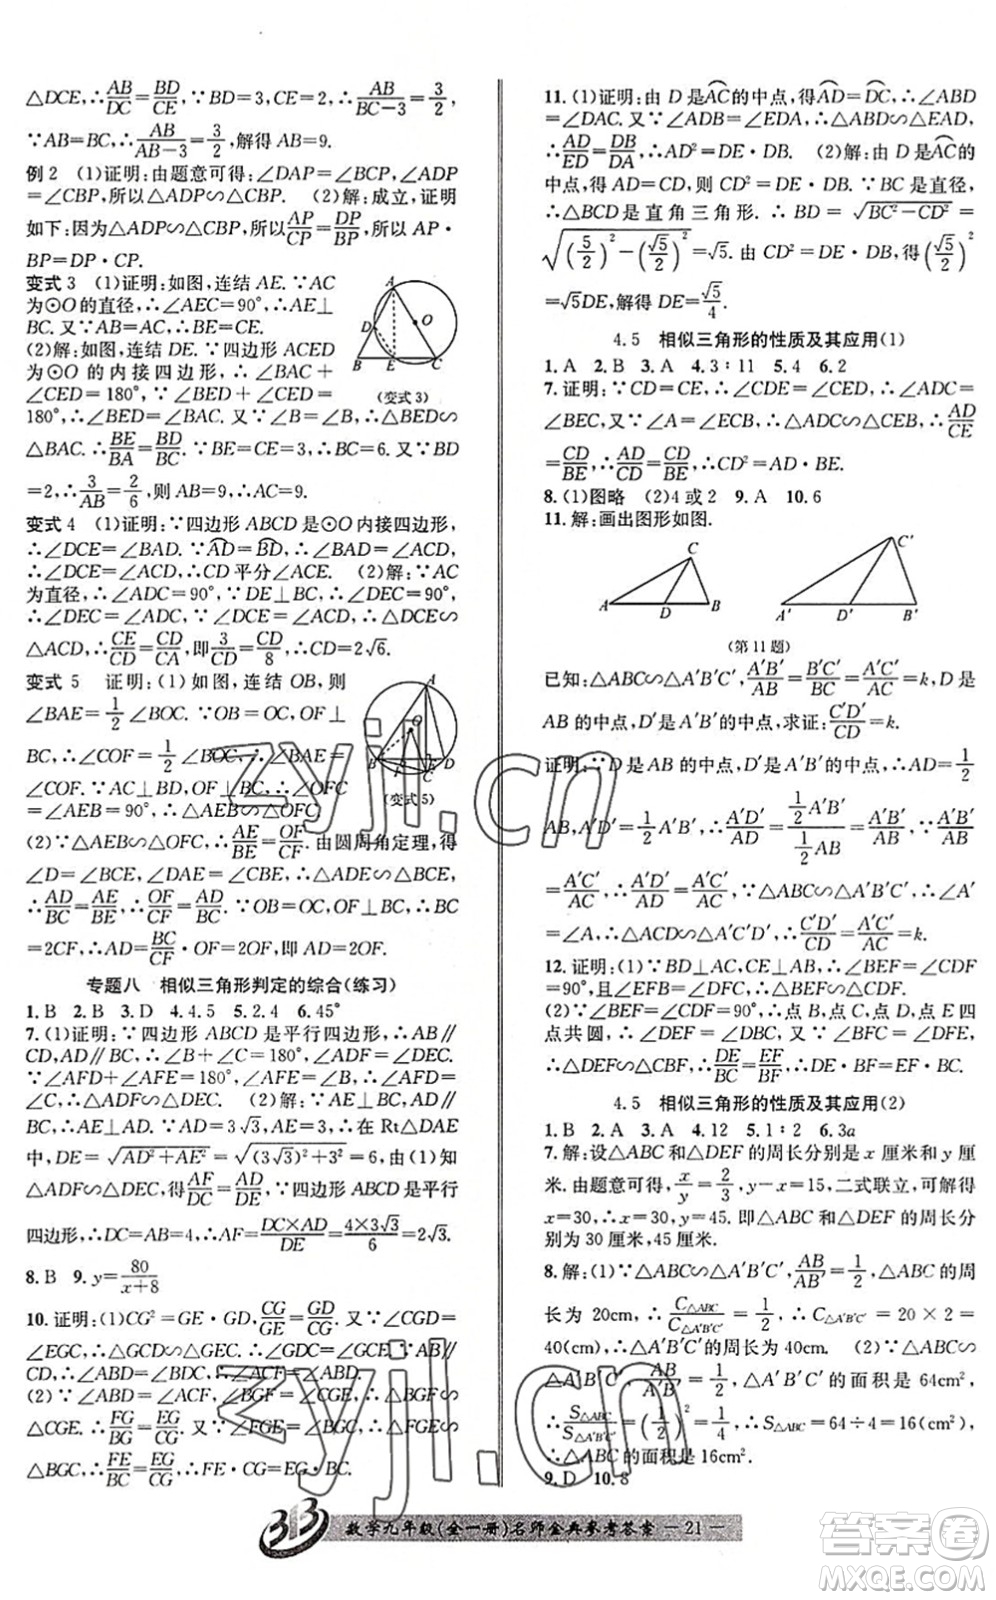 △DCE,∴AB/DC=BD/CE.∵BD=3,CE=2,∴AB/(BC-3)=3/2,
∵AB=BC,∴AB/(AB-3)=3/2,解得 AB=9.
例 2 (1)证明:由题意可得:∠DAP=∠BCP,∠ADP
=∠CBP,所以△ADP∽△CBP. (2)解:成立,证明
如下:因为△ADP∽△CBP,所以AP/CP=DP/BP,所以 AP·
BP=DP·CP.
变式 3 (1)证明:如图,连结 AE.∵AC
为⊙O 的直径,∴∠AEC=90°,∴AE⊥
BC.又∵AB=AC,∴BE=CE.
(2)解:如图,连结 DE.∵四边形 ACED
为⊙O 的内接四边形,∴∠BAC+
∠CED=180°,∵∠BED+∠CED=
180°,∴∠BED=∠BAC.
又∵∠B=∠B,∴△BED∽
△BAC.∴BE/BA=BD/BC.∵BE=CE=3,∴BC=6.又∵BD
=2,∴3/AB=2/6,则 AB=9,∴AC=9.
A
D
O
B
E
C
(变式 3)
变式 4 (1)证明:∵四边形 ABCD 是⊙O 内接四边形,
∴∠DCE=∠BAD.∵AD⌒=BD⌒,∴∠ACD=∠BAD,
∴∠DCE=∠ACD,∴CD 平分∠ACE. (2)解:∵AC
为直径,∴∠ADC=90°,∵DE⊥BC,∴∠DEC=90°,
∴∠DEC=∠ADC,∵∠DCE=∠ACD,∴△DCE∽
△ACD,∴CE/CD=CD/CA,即3/CD=CD/8,∴CD=2√6.
变式 5 证明:(1)如图,连结 OB,则
∠BAE=1/2∠BOC.∵OB=OC,OF⊥
BC,∴∠COF=1/2∠BOC,∴∠BAE=
∠COF.∵AC⊥BD,OF⊥BC,∴∠OFC
=∠AEB=90°,∴△AEB∽△OFC.
(变式 5)
(2)∵△AEB∽△OFC,∴AE/BE=OF/CF.由圆周角定理,得
∠D=∠BCE,∠DAE=∠CBE,∴△ADE∽△BCE.
∴AD/BC=AE/BE,∴OF/CF=AD/BC.∵OB=OC,OF⊥BC,∴BC
=2CF,∴AD=BC/CF·OF=2OF,即 AD=2OF.
专题八 相似三角形判定的综合(练习)
1.B 2.B 3.D 4.4.5 5.2.4 6.45°
7.(1)证明:∵四边形 ABCD 是平行四边形,∴AB∥
CD,AD∥BC,∴∠B+∠C=180°,∠ADF=∠DEC.
∵∠AFD+∠AFE=180°,∠AFE=∠B,∴∠AFD=
∠C,∴△ADF∽△DEC. (2)解:∵AE⊥BC,AD∥
BC,∴AE⊥AD.∵AD=3√3,AE=3,∴在 Rt△DAE
中,DE=√(AD²+AE²)=√((3√3)²+3²)=6.由(1)知
△ADF∽△DEC,得AF/DC=AD/DE.∵四边形 ABCD 是平行
四边形,∴DC=AB=4,∴AF=DC×AD/DE=4×3√3/6=2√3.
8.B 9.y=80/(x+8)
10.证明:(1)CG²=GE·GD,CG/GE=GD/CG.又∵∠CGD=
∠EGC,∴△GCD∽△GEC.∴∠GDC=∠GCE.∵AB∥
CD,∴∠ABD=∠BDC.∴∠ACF=∠ABD.
(2)∵∠ABD=∠ACF,∠BGF=∠CGE,∴△BGF∽
△CGE.∴FG/BG=EG/CG.又∵∠FGE=∠BGC,∴△FGE∽
△BGC,∴FE/BC=FG/BG,∴FE·CG=EG·BC.
11.(1)证明:由 D 是AC⌒的中点,得AD⌒=DC⌒,∴∠ABD
=∠DAC.又∵∠ADB=∠EDA,∴△ABD∽△EAD,
∴AD/ED=BD/DA,∴AD²=DE·BD. (2)解:由 D 是AC⌒的
中点,得 AD=CD,则 CD²=DE·BD.∵BC 是直径,
∴△BCD 是直角三角形.∴BD=√(BC²-CD²)=
√((5/2)²-(√5/2)²)=√5.由 CD²=DE·BD,得(√5/2)²
=√5DE,解得 DE=√5/4.
4.5 相似三角形的性质及其应用(1)
1.A 2.B 3.A 4.3∶11 5.4 6.2
7.证明:∵CD=CE,∴∠CDE=∠CED,∴∠ADC=
∠BEC,又∵∠A=∠ECB,∴△ADC∽△CEB,∴AD/CE=
CD/BE,∴AD/CD=CD/BE,∴CD²=AD·BE.
8.(1)图略 (2)4 或 2 9.A 10.6
11.解:画出图形如图.
A
D
B
C
A′
D′
B′
C′
(第 11 题)
已知:△ABC∽△A′B′C′,A′B′/AB=B′C′/BC=A′C′/AC=k,D 是
AB 的中点,D′是 A′B′的中点,求证:C′D′/CD=k.
证明:∵D 是 AB 的中点,D′是 A′B′的中点,∴AD=1/2
AB,A′D′=1/2A′B′,∴A′D′/AD=(1/2A′B′)/(1/2AB)=A′B′/AB,∵A′B′/AB
=A′C′/AC,∴A′D′/AD=A′C′/AC.∵△ABC∽△A′B′C′,∴∠A′
=∠A,∴△A′C′D′∽△ACD,∴C′D′/CD=A′C′/AC=k.
12.证明:(1)∵EF⊥BE,∴∠BEF=90°,∴∠CEB
+∠FEB=∠BEF+∠DCE,即∠CEF=∠DEB.
(2)∵∠BEF=∠CDF=90°,∴点 B,点 C,点 D,点 E 四
点共圆,∴∠DEF=∠DCF.又∵∠BFC=∠DFE,
∴△BFC∽△DEF,∴DE/BC=EF/BF,∴DE·BF=EF·BC.
4.5 相似三角形的性质及其应用(2)
1.B 2.A 3.A 4.12 5.1∶2 6.3a
7.解:设△ABC 和△DEF 的周长分别是 x 厘米和 y 厘
米.由题意可得,x/y=2/3,y-x=15,二式联立,可解得
x=30,y=45.即△ABC 和△DEF 的周长分
别为 30 厘米,45 厘米.
8.解:(1)∵△ABC∽△A′B′C′,AB/A′B′=1/2,△ABC 的周
长为 20cm,∴C△ABC/C△A′B′C′=1/2,∴C△A′B′C′=20×2=
40(cm),∴△A′B′C′的周长为 40cm. (2)∵△ABC∽
△A′B′C′,AB/A′B′=1/2,△A′B′C′的面积是 64cm²,
∴S△ABC/S△A′B′C′=(1/2)²=1/4,∴S△ABC=64÷4=16(cm²),
∴△ABC 的面积是 16cm².
9.D 10.8
数学九年级(全一册)名师金典参考答案 —21—
zyjl.cn
zyjl.cn
答案圈
MXQE.COM